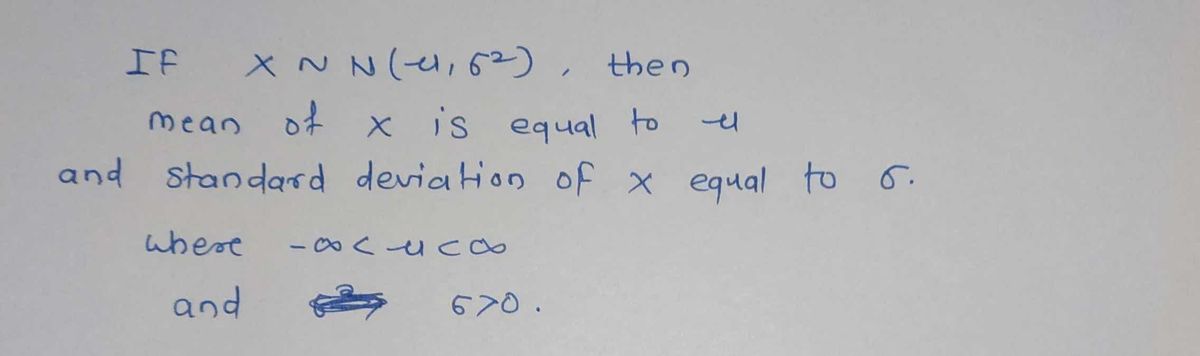 If X ~ N(μ, σ²), then
mean of x is equal to μ
and standard deviation of x equal to σ.
where -∞ < μ < ∞
and σ>0.